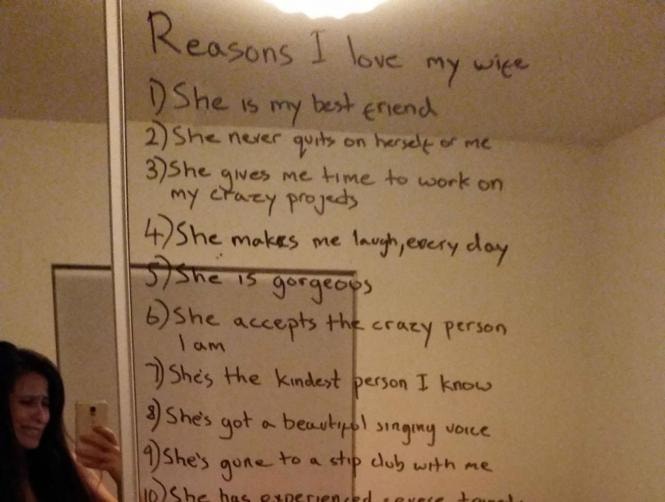 Reasons I love my wife
1) She is my best friend
2) She never quits on herself or me
3) She gives me time to work on
my crazy projects
4) She makes me laugh, every day
5) She is gorgeous
6) She accepts the crazy person
I am
7) She's the kindest person I know
8) She's got a beautiful singing voice
9) She's gone to a stip club with me
10) She has experienced severe